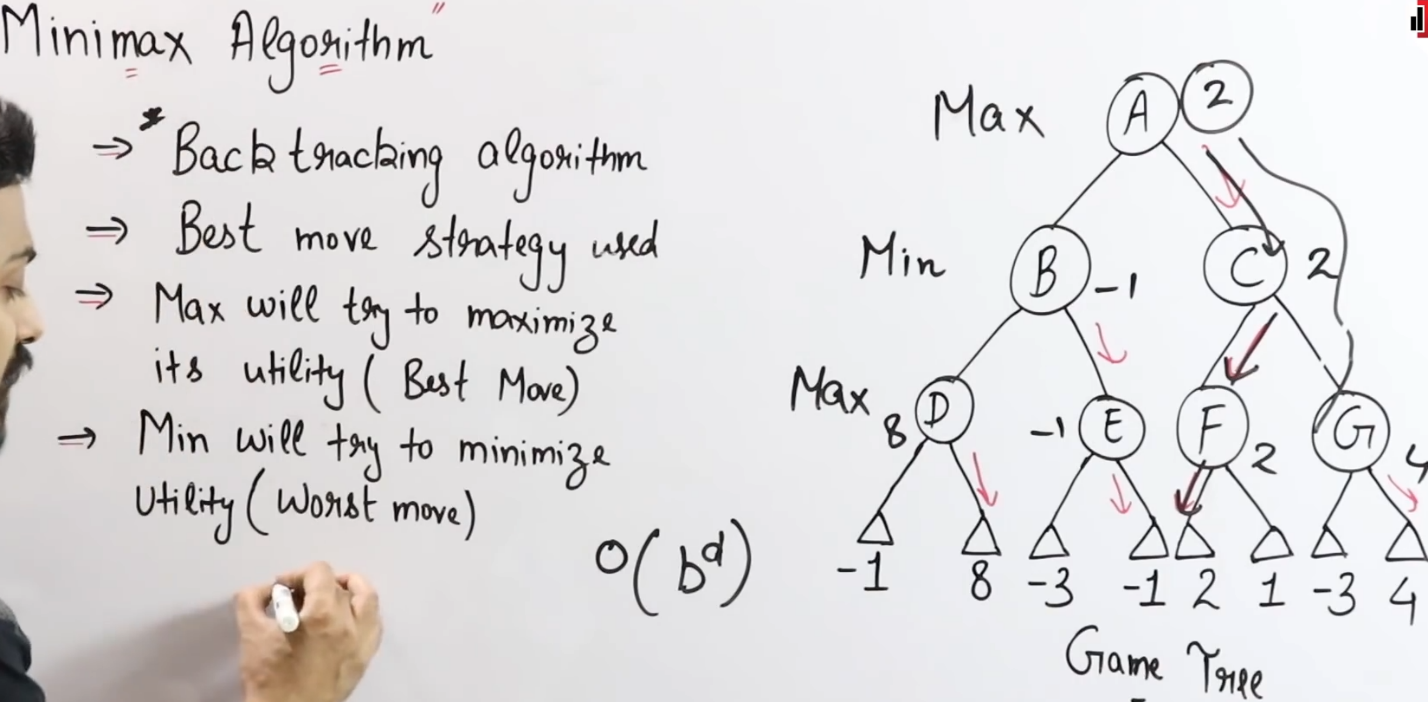 Minimax Algorithm"
⇒ * Backtracking algorithm
⇒ Best move strategy used
⇒ Max will try to maximize
its utility (Best Move)
⇒ Min will try to minimize
Utility (Worst move)
O(b^d)
Max A 2
Min B -1 C 2
Max 8 D -1 E F 2 G 4
-1 8 -3 -1 2 1 -3 4
Game Tree